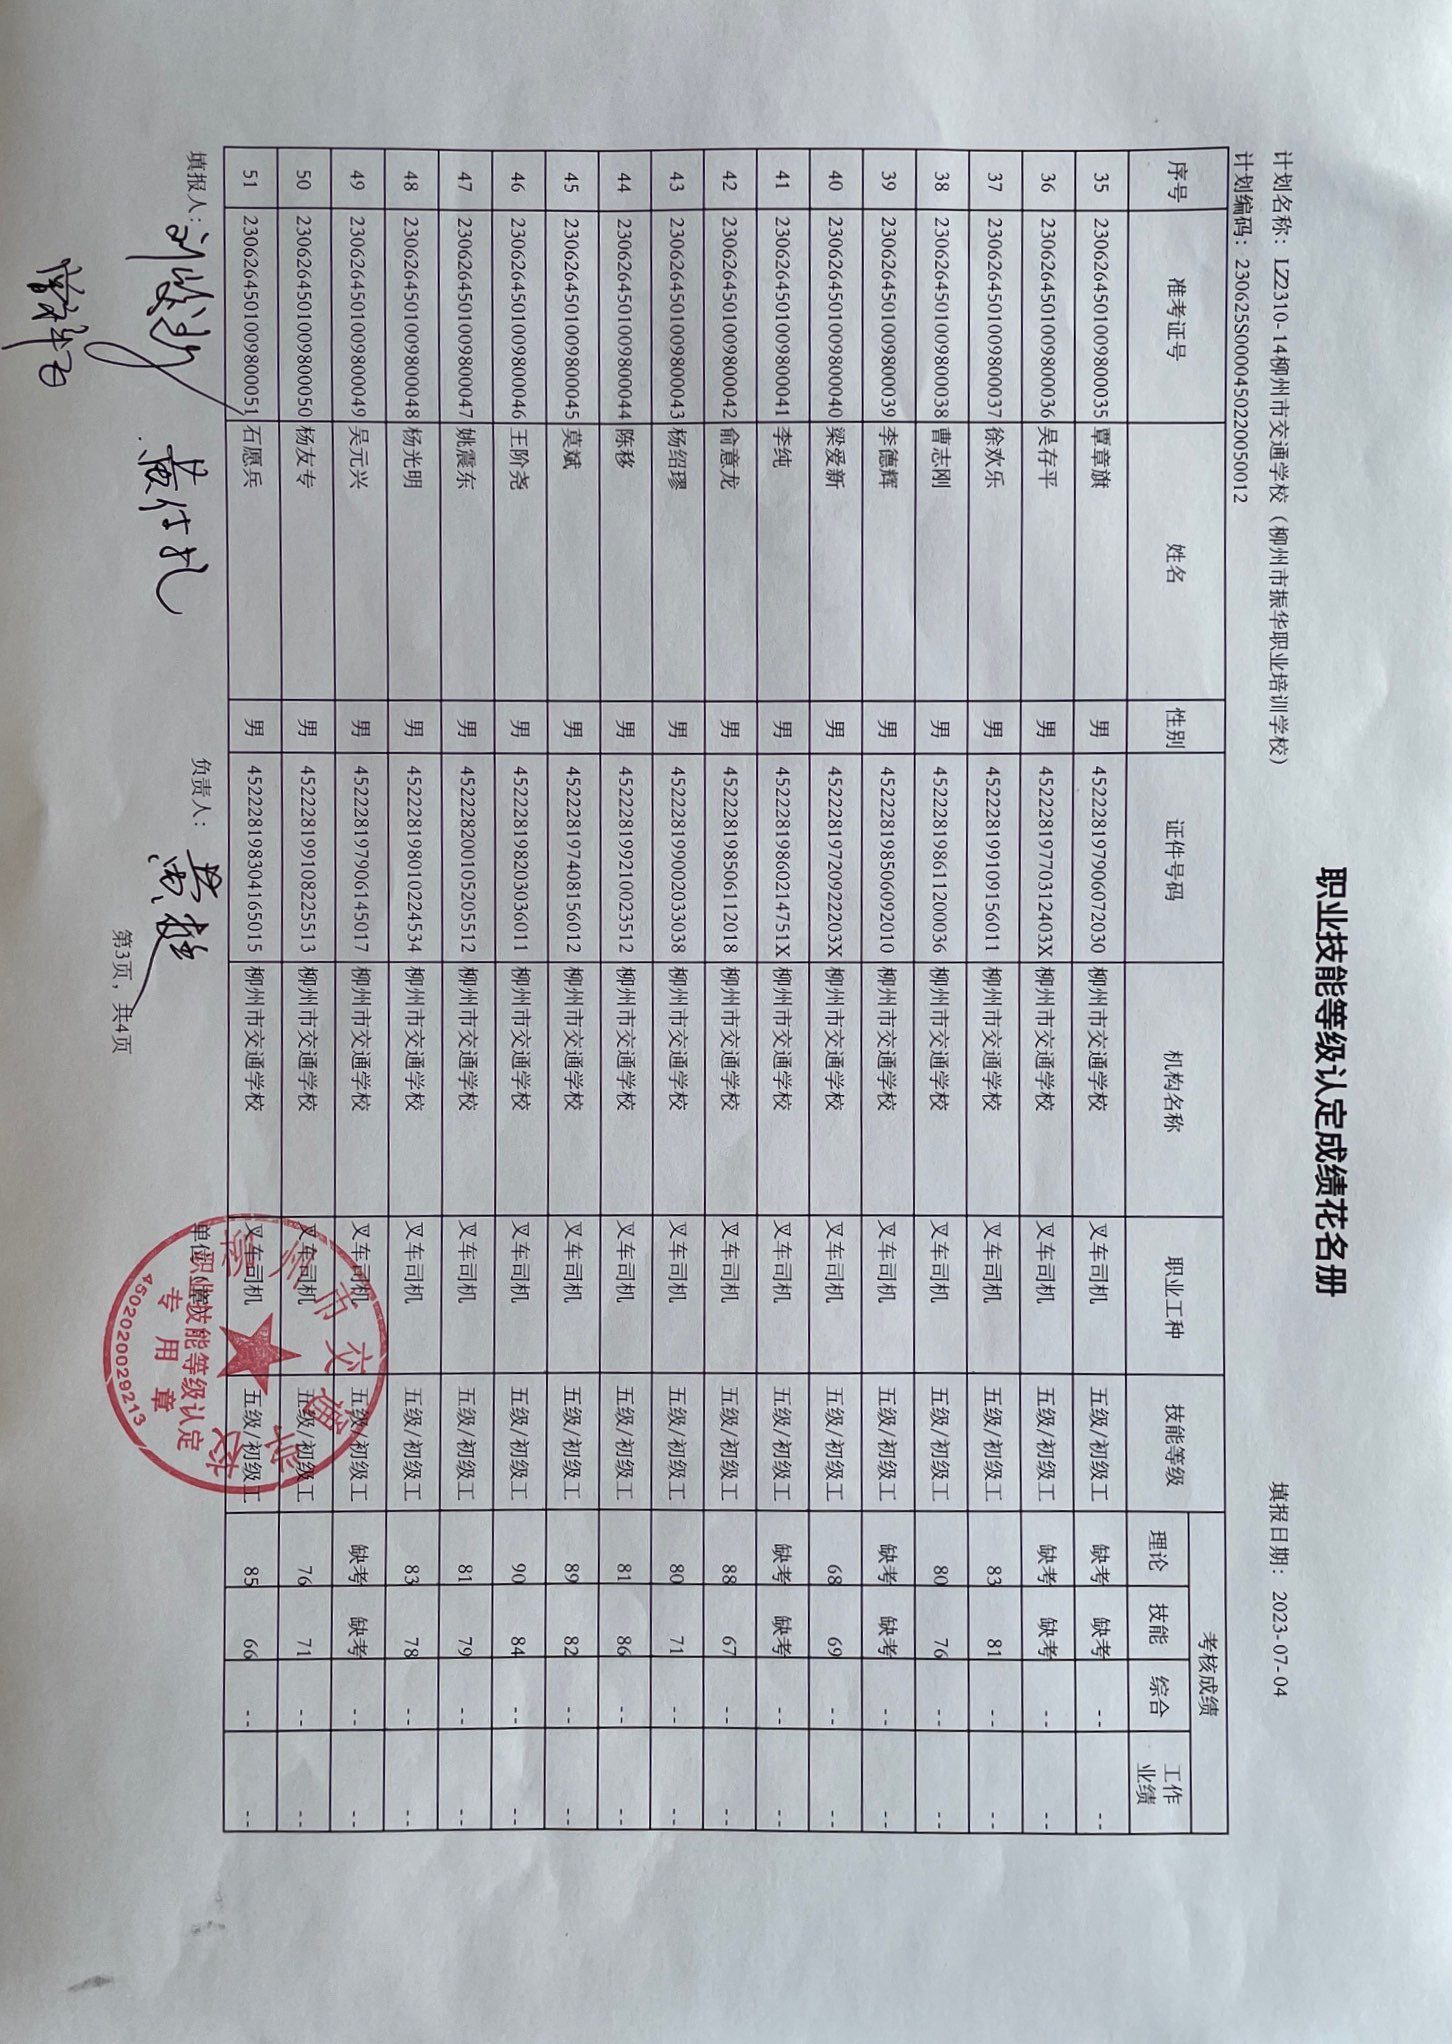 职业技能等级认定成绩花名册
计划名称：LZ2310-14柳州市交通学校（柳州市振华职业培训学校） 填报日期：2023-07-04
计划编码：230625S0000450220050012
序号 准考证号 姓名 性别 证件号码 机构名称 职业工种 技能等级 考核成绩
理论 技能 综合 工作业绩
35 2306264501009800035 覃章旗 男 452228197906072030 柳州市交通学校 叉车司机 五级/初级工 缺考 缺考 -- --
36 2306264501009800036 吴存平 男 45222819770312403X 柳州市交通学校 叉车司机 五级/初级工 缺考 缺考 -- --
37 2306264501009800037 徐欢乐 男 452228199109156011 柳州市交通学校 叉车司机 五级/初级工 83 81 -- --
38 2306264501009800038 曹志刚 男 452228198611200036 柳州市交通学校 叉车司机 五级/初级工 80 76 -- --
39 2306264501009800039 李德辉 男 452228198506092010 柳州市交通学校 叉车司机 五级/初级工 缺考 缺考 -- --
40 2306264501009800040 梁爱新 男 45222819720922203X 柳州市交通学校 叉车司机 五级/初级工 68 69 -- --
41 2306264501009800041 李纯 男 45222819860214751X 柳州市交通学校 叉车司机 五级/初级工 缺考 缺考 -- --
42 2306264501009800042 俞意龙 男 452228198506112018 柳州市交通学校 叉车司机 五级/初级工 88 67 -- --
43 2306264501009800043 杨绍璆 男 452228199002033038 柳州市交通学校 叉车司机 五级/初级工 80 71 -- --
44 2306264501009800044 陈移 男 452228199210023512 柳州市交通学校 叉车司机 五级/初级工 81 86 -- --
45 2306264501009800045 莫斌 男 452228197408156012 柳州市交通学校 叉车司机 五级/初级工 89 82 -- --
46 2306264501009800046 王阶尧 男 452228198203036011 柳州市交通学校 叉车司机 五级/初级工 90 84 -- --
47 2306264501009800047 姚震东 男 452228200105205512 柳州市交通学校 叉车司机 五级/初级工 81 79 -- --
48 2306264501009800048 杨光明 男 452228198010224534 柳州市交通学校 叉车司机 五级/初级工 83 78 -- --
49 2306264501009800049 吴元兴 男 452228197906145017 柳州市交通学校 叉车司机 五级/初级工 缺考 缺考 -- --
50 2306264501009800050 杨友专 男 452228199108225513 柳州市交通学校 叉车司机 五级/初级工 76 71 -- --
51 2306264501009800051 石愿兵 男 452228198304165015 柳州市交通学校 叉车司机 五级/初级工 85 66 -- --
填报人： 负责人： 单位
第3页，共4页
柳州市交通学校
职业技能等级认定
专用章
4502020029213